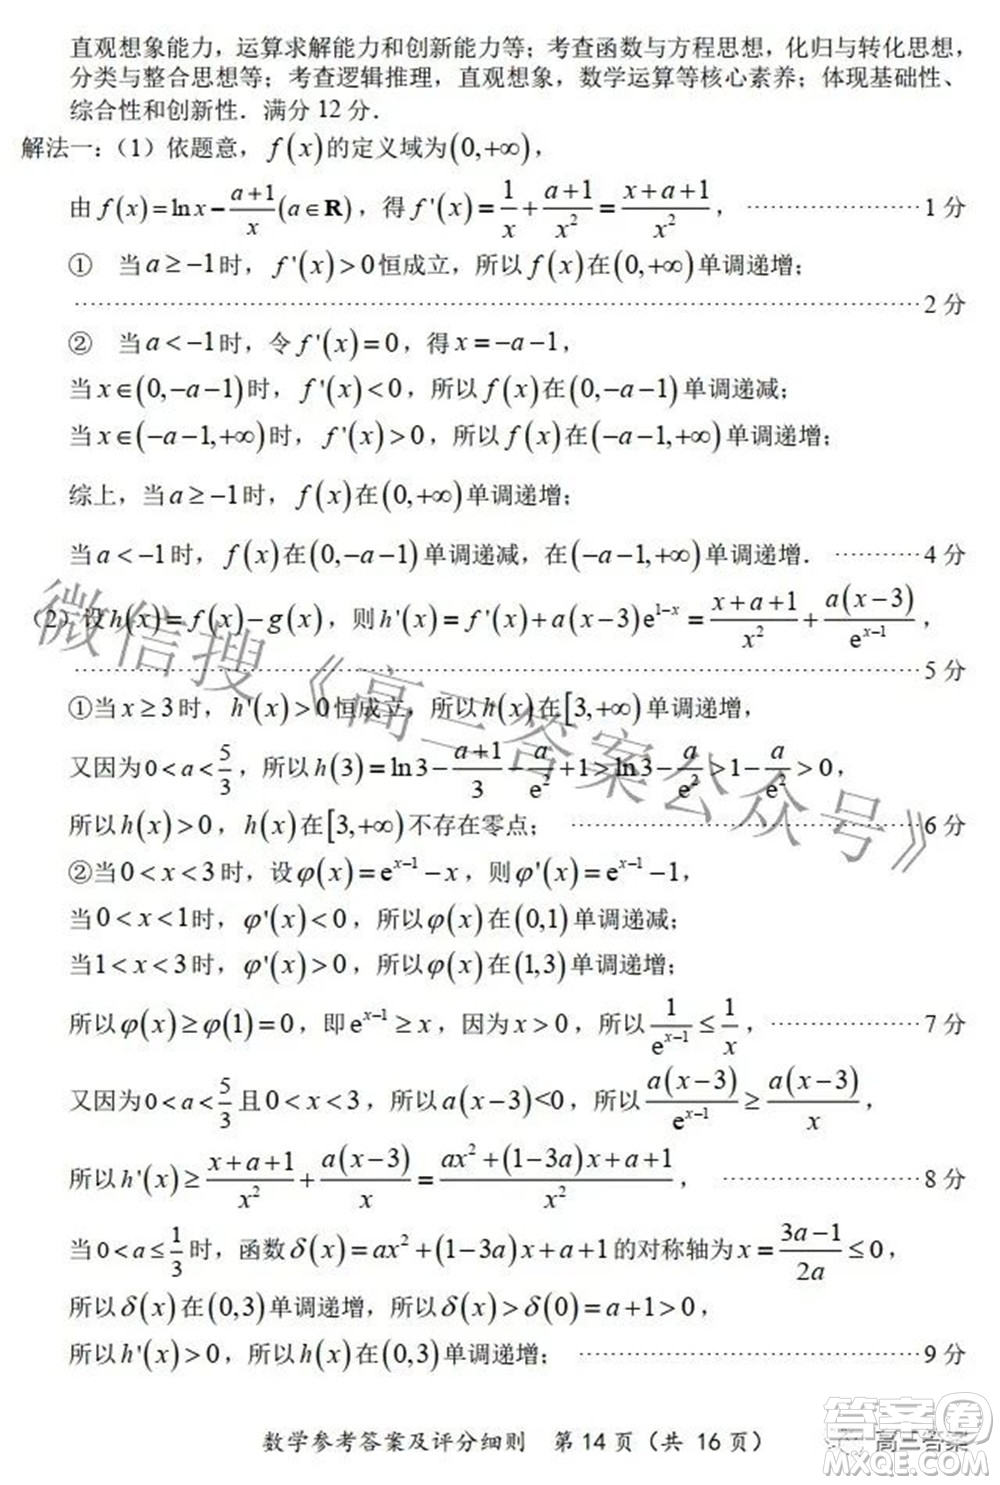 直观想象能力，运算求解能力和创新能力等；考查函数与方程思想，化归与转化思想，
分类与整合思想等；考查逻辑推理，直观想象，数学运算等核心素养；体现基础性、
综合性和创新性．满分 12 分．
解法一：（1）依题意，f(x)的定义域为(0,+∞)，
由 f(x)=ln x−(a+1)/x (a∈R)，得 f'(x)=1/x+(a+1)/x²=(x+a+1)/x²，……………………1 分
① 当 a≥−1时，f'(x)>0恒成立，所以 f(x)在(0,+∞)单调递增；
……………………2 分
② 当 a<−1时，令 f'(x)=0，得 x=−a−1，
当 x∈(0,−a−1)时，f'(x)<0，所以 f(x)在(0,−a−1)单调递减；
当 x∈(−a−1,+∞)时，f'(x)>0，所以 f(x)在(−a−1,+∞)单调递增；
综上，当 a≥−1时，f(x)在(0,+∞)单调递增；
当 a<−1时，f(x)在(0,−a−1)单调递减，在(−a−1,+∞)单调递增．…………4 分
（2）设 h(x)=f(x)−g(x)，则 h'(x)=f'(x)+a(x−3)e^(1−x)=(x+a+1)/x²+a(x−3)/e^(x−1)，
……………………5 分
①当 x≥3时，h'(x)>0恒成立，所以 h(x)在[3,+∞)单调递增，
又因为 0<a<5/3，所以 h(3)=ln3−(a+1)/3−a/e²+1>ln3−a/e²>1−a/e²>0，
所以 h(x)>0，h(x)在[3,+∞)不存在零点；……………………6 分
②当 0<x<3时，设 φ(x)=e^(x−1)−x，则 φ'(x)=e^(x−1)−1，
当 0<x<1时，φ'(x)<0，所以 φ(x)在(0,1)单调递减；
当 1<x<3时，φ'(x)>0，所以 φ(x)在(1,3)单调递增；
所以 φ(x)≥φ(1)=0，即 e^(x−1)≥x，因为 x>0，所以 1/e^(x−1)≤1/x，…………7 分
又因为 0<a<5/3 且 0<x<3，所以 a(x−3)<0，所以 a(x−3)/e^(x−1)≥a(x−3)/x，
所以 h'(x)≥(x+a+1)/x²+a(x−3)/x=(ax²+(1−3a)x+a+1)/x²，…………8 分
当 0<a≤1/3 时，函数 δ(x)=ax²+(1−3a)x+a+1的对称轴为 x=(3a−1)/2a≤0，
所以 δ(x)在(0,3)单调递增，所以 δ(x)>δ(0)=a+1>0，
所以 h'(x)>0，所以 h(x)在(0,3)单调递增；……………………9 分
数学参考答案及评分细则 第 14 页（共 16 页）
微信搜《高三答案公众号》
高三答案
答案卷
MXQE.COM